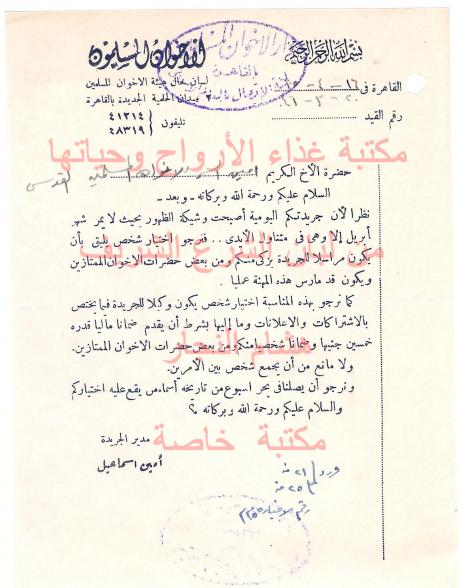 بسم الله الرحمن الرحيم
الاخوان المسلمون
دار الاخوان المسلمين
بالقاهرة
لسان حال هيئة الاخوان المسلمين
ميدان الحلمية الجديدة بالقاهرة
تليفون
٤١٣١٤
٤٨٣١٩
القاهرة فى ١٦ – ٤ –
رقم القيد
مكتبة غذاء الأرواح وحياتها
حضرة الأخ الكريم امين الاخوان المسلمين القدس
السلام عليكم ورحمة الله وبركاته – وبعد –
نظرا لأن جريدتكم اليومية أصبحت وشيكة الظهور بحيث لا يمر شهر
أبريل إلا وهى فى متناول الأيدى .. فنرجو اختيار شخص يليق بأن
يكون مراسلا للجريدة يزكى منكم ومن بعض حضرات الاخوان الممتازين
ويكون قد مارس هذه المهنة عمليا .
كما نرجو بهذه المناسبة اختيار شخص يكون وكيلا للجريدة فيما يختص
بالاشتراكات والاعلانات وما إليها بشرط أن يقدم ضمانا ماليا قدره
خمسين جنيها وضمانا شخصيا منكم ومن بعض حضرات الاخوان الممتازين.
هشام النجار
ولا مانع من أن يجمع شخص بين الأمرين.
ونرجو أن يصلنا فى بحر اسبوع من تاريخه أسماء من يقع عليه اختياركم
والسلام عليكم ورحمة الله وبركاته ؟
مكتبة خاصة
مدير الجريدة
أمين اسماعيل
ورد ٢١ منه
٢٥ منه